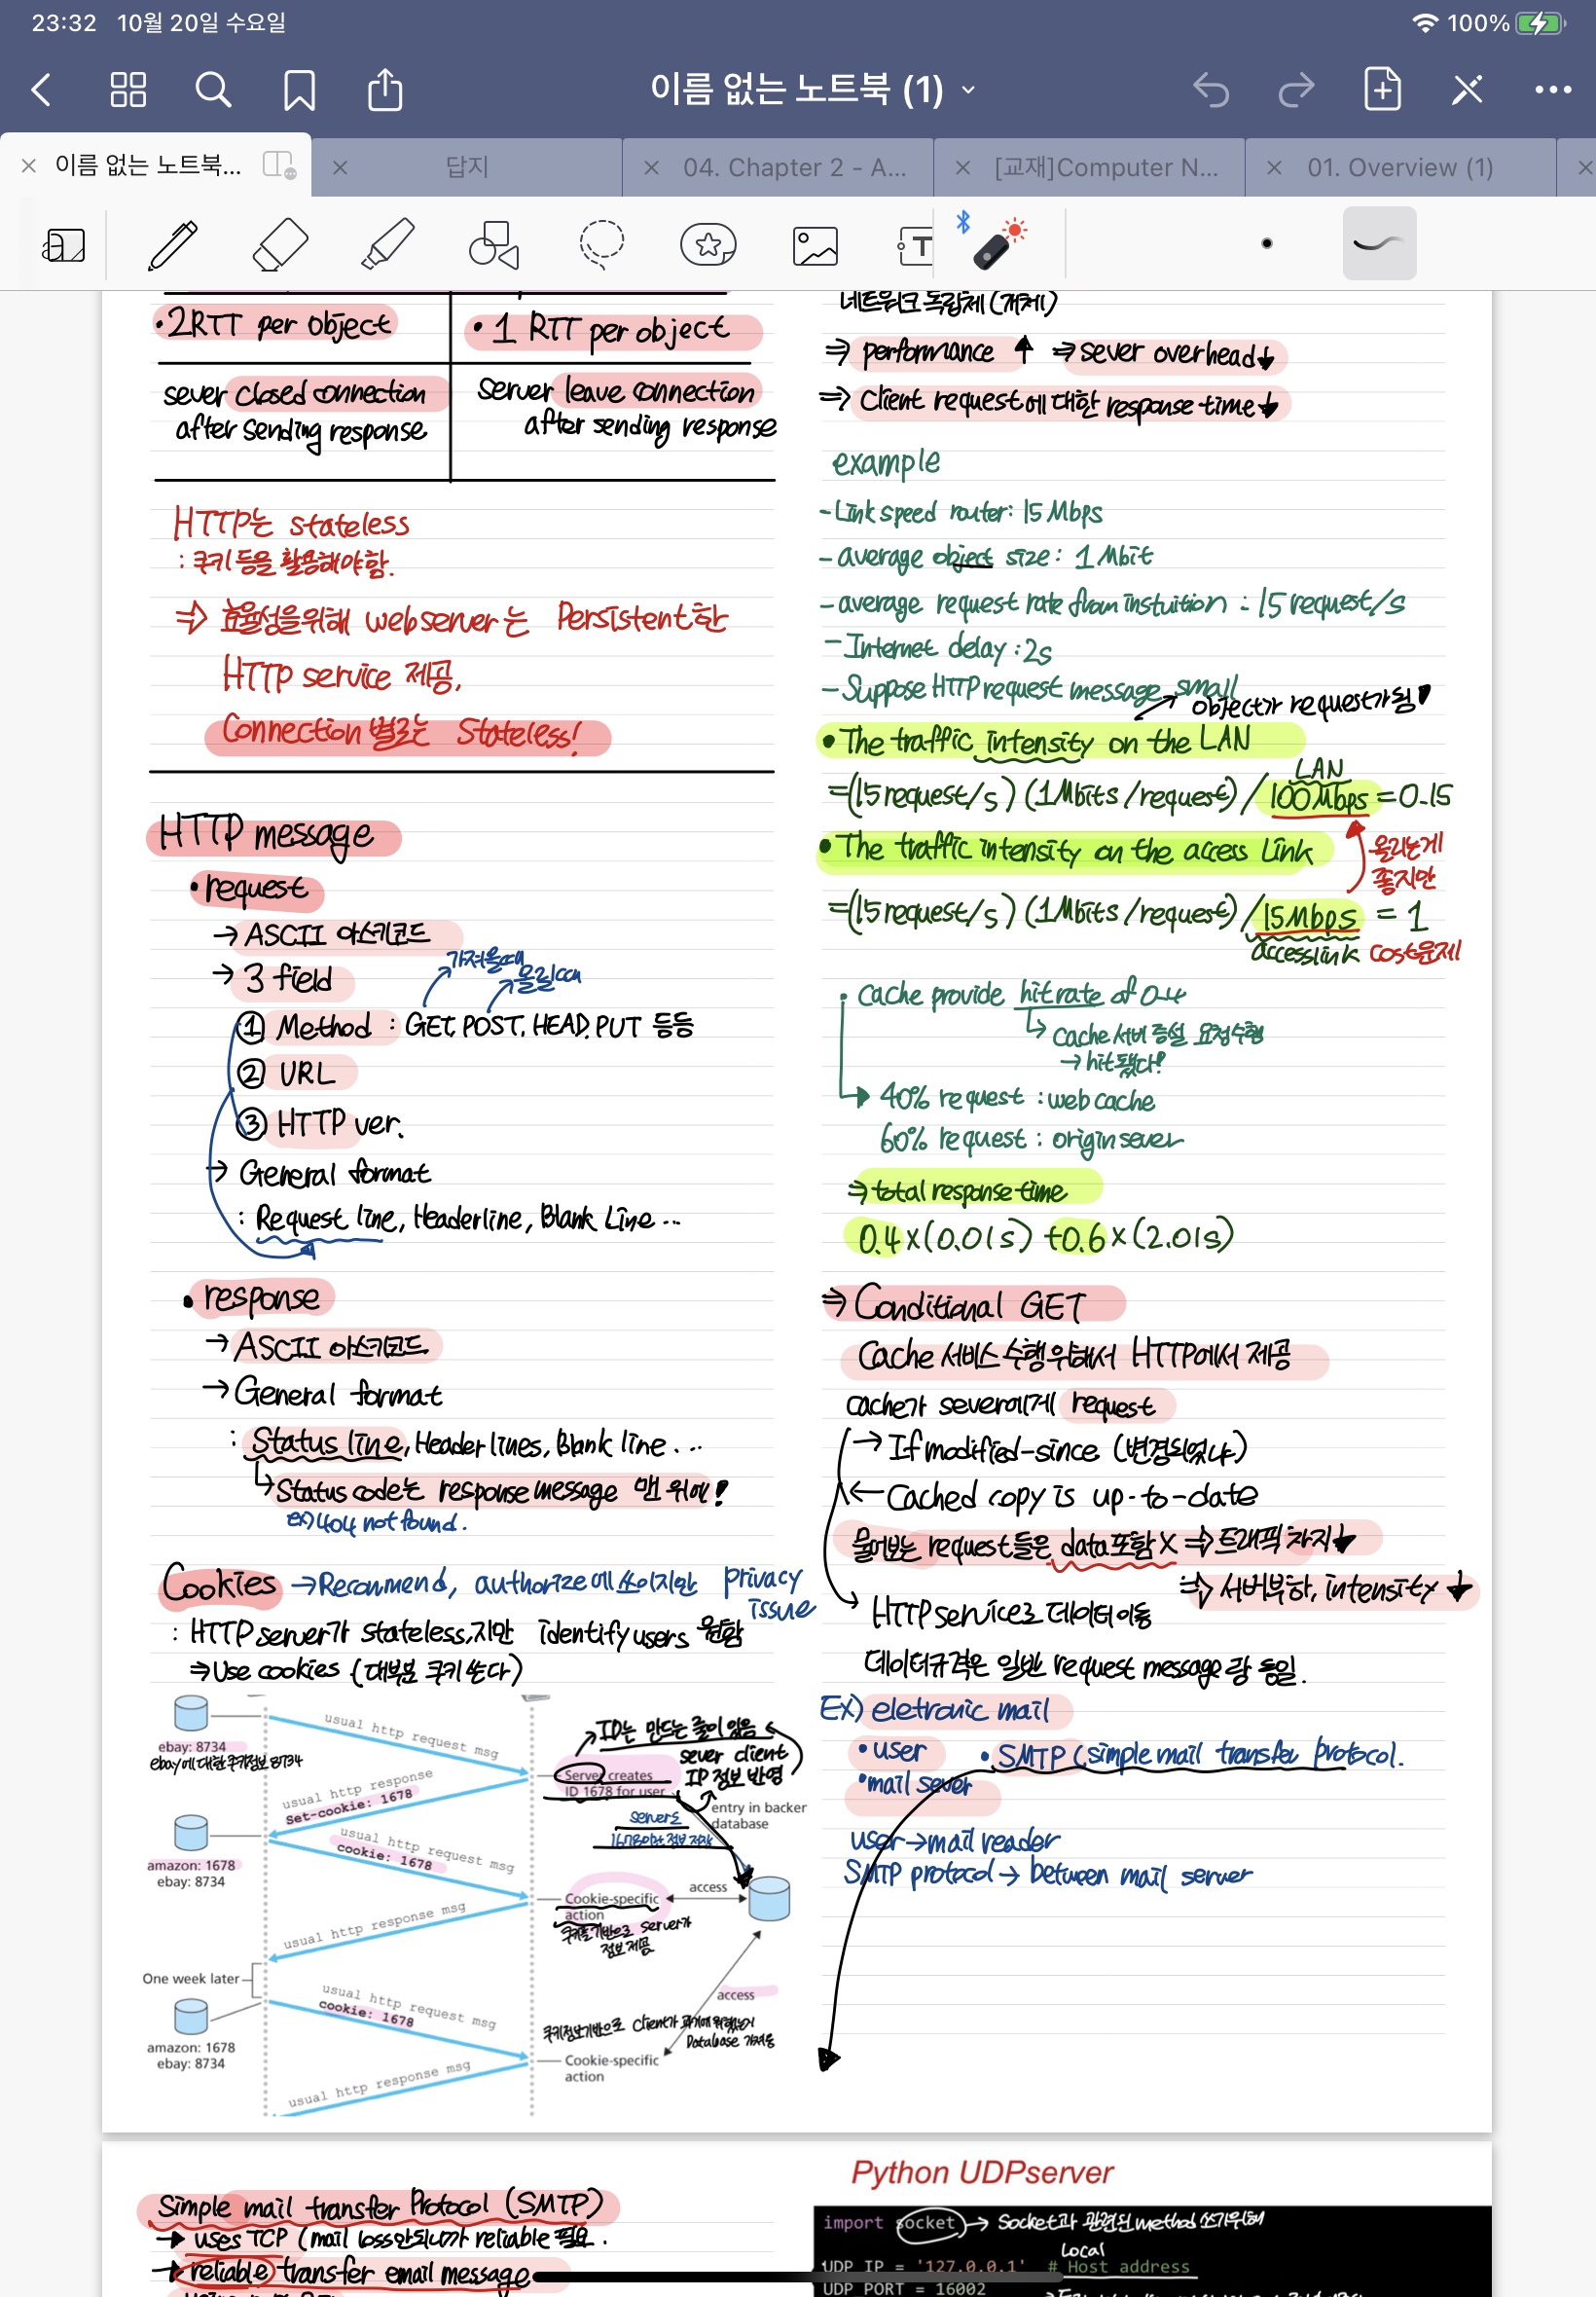 23:32 10월 20일 수요일
100%
이름 없는 노트북 (1)
이름 없는 노트북...
답지
04. Chapter 2 - A...
[교재]Computer N...
01. Overview (1)
T
• 2RTT per object
• 1 RTT per object
sever closed connection
after sending response
server leave connection
after sending response
HTTP는 stateless
: 쿠키 등을 활용해야함.
⇒ 효율성을위해 webserver는 Persistent한
HTTP service 제공,
Connection 별로는 Stateless!
HTTP message
• request
→ ASCII 아스키코드
→ 3 field
가져올때
올릴때
① Method : GET, POST, HEAD, PUT 등등
② URL
③ HTTP ver.
→ General format
: Request line, Headerline, Blank Line ...
• response
→ ASCII 아스키코드
→ General format
: Status line, Header lines, Blank line ...
↳ Status code는 response message 맨 위에!
ex) 404 not found.
Cookies → Recommend, authorize에 쓰이지만 privacy
issue
: HTTP server가 stateless지만 identify users 원함
⇒ Use cookies (대부분 쿠키 쓴다)
ebay: 8734
ebay에 대한 쿠키정보 8734
usual http request msg
Server creates
ID 1678 for user
ID는 만드는 룰이 있음
sever client
IP 정보 반영
usual http response
Set-cookie: 1678
entry in backer
database
amazon: 1678
ebay: 8734
usual http request msg
cookie: 1678
Cookie-specific
action
access
쿠키를 기반으로 server가
정보 제공
usual http response msg
One week later
amazon: 1678
ebay: 8734
usual http request msg
cookie: 1678
access
쿠키정보기반으로 client가
Database 가져옴
Cookie-specific
action
usual http response msg
네트워크 독립체 (개체)
⇒ performance ↑ ⇒ sever overhead↓
⇒ Client request에 대한 response time↓
example
- Link speed router: 15 Mbps
- average object size: 1 Mbit
- average request rate from instuition : 15 request/s
- Internet delay : 2s
- Suppose HTTP request message small
object가 request가 됨
• The traffic intensity on the LAN
LAN
=(15 request/s) (1Mbits/request) / 100Mbps = 0.15
• The traffic intensity on the access Link
올리는게
좋지만
=(15 request/s) (1Mbits/request) / 15Mbps = 1
access link cost문제
• Cache provide hit rate of 0.4
↳ → hit됐다!
40% request : web cache
60% request : origin sever
⇒ total response time
0.4×(0.01s) +0.6×(2.01s)
⇒ Conditional GET
Cache 서비스 수행위해서 HTTP에서 제공
cache가 sever에게 request
→ If modified-since (변경되었냐)
← Cached copy is up-to-date
물어보는 request들은 data포함 X ⇒ 트래픽 차지↓
⇒ 서버부하, intensity ↓
HTTP service로 데이터 이동
데이터규격은 일반 request message랑 동일.
EX) eletronic mail
• user
• SMTP (simple mail transfer protocol.
• mail sever
user→mail reader
SMTP protocol → between mail server
Simple mail transfer Protocol (SMTP)
→ uses TCP (mail loss안되니까 reliable 필요.
→ reliable transfer email message
Python UDPserver
import socket → Socket과 관련된 method 쓰기위해
Local
UDP IP = '127.0.0.1' # Host address
UDP PORT = 16002